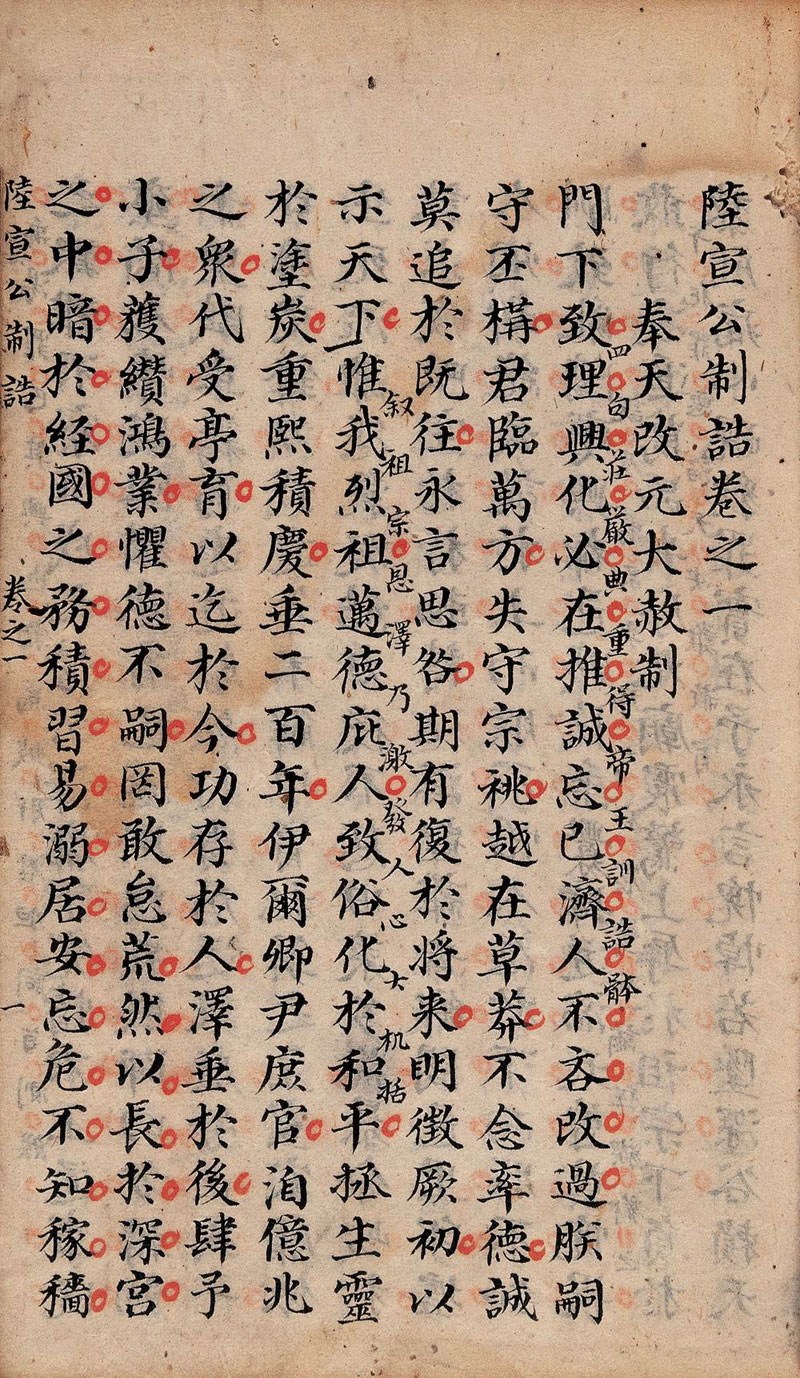 陸宣公制誥卷之一
奉天改元大赦制
四句莊嚴典重得帝王訓誥骵
門下致理興化必在推誠忘已濟人不吝改過朕嗣
守丕構君臨萬方失守宗祧越在草莽不念率德誠
莫追於既往永言思咎期有復於将来明徴厥初以
叙祖宗恩澤乃激發人心大机括
示天下惟我烈祖邁德庇人致俗化於和平拯生靈
於塗炭重熙積慶垂二百年伊爾卿尹庶官洎億兆
之衆代受亭育以迄於今功存於人澤垂於後肆予
小子獲纘鴻業懼徳不嗣罔敢怠荒然以長於深宮
之中暗於経國之務積習易溺居安忘危不知稼穡
陸宣公制誥 卷之一 一